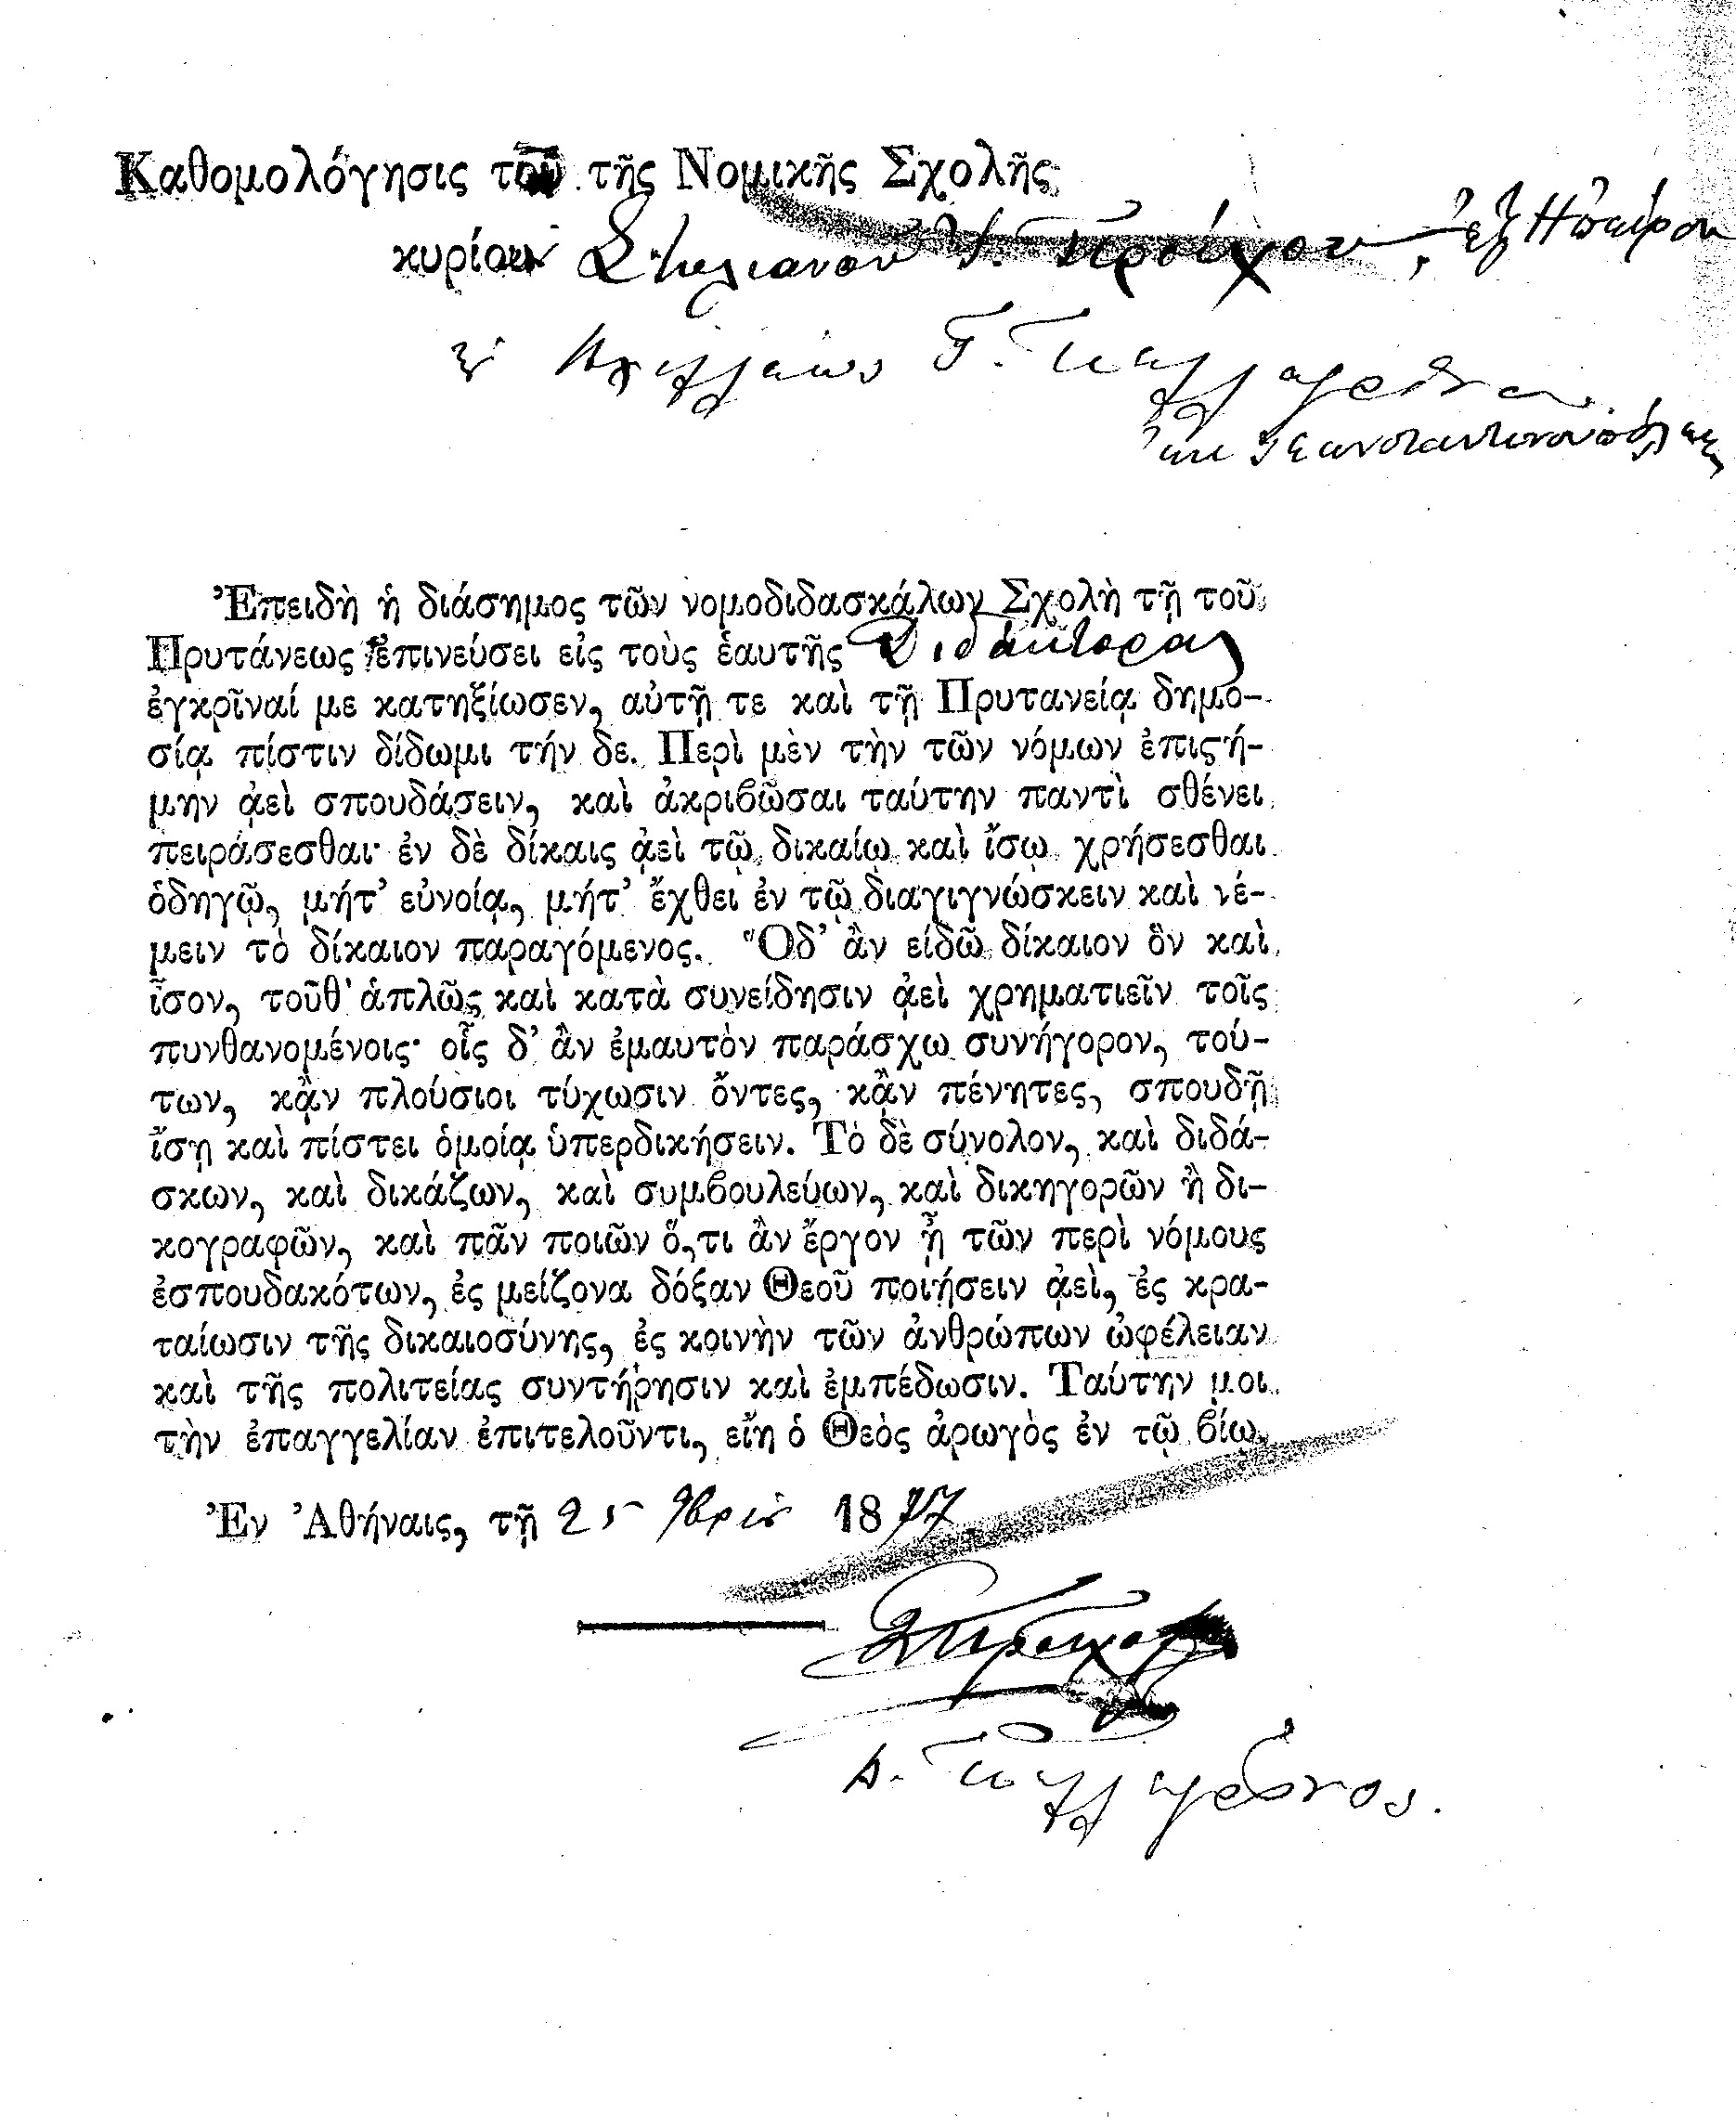 Καθομολόγησις τοῦ τῆς Νομικῆς Σχολῆς
κυρίου Στυλιανοῦ ἐξ Ἠπείρου
Ἀχιλλέως Γ.
ἐκ Κωνσταντινουπόλεως
Ἐπειδὴ ἡ διάσημος τῶν νομοδιδασκάλων Σχολὴ τῇ τοῦ
Πρυτάνεως ἐπινεύσει εἰς τοὺς ἑαυτῆς Διδάκτορας
ἐγκρῖναί με κατηξίωσεν, αὐτῇ τε καὶ τῇ Πρυτανείᾳ δημο-
σίᾳ πίστιν δίδωμι τήν δε. Περὶ μὲν τὴν τῶν νόμων ἐπιςή-
μην ᾀεὶ σπουδάσειν, καὶ ἀκριϐῶσαι ταύτην παντὶ σθένει
πειράσεσθαι· ἐν δὲ δίκαις ᾀεὶ τῷ δικαίῳ καὶ ἴσῳ χρήσεσθαι
ὁδηγῷ, μήτ’ εὐνοίᾳ, μήτ’ ἔχθει ἐν τῷ διαγιγνώσκειν καὶ νέ-
μειν τὸ δίκαιον παραγόμενος. Ὃδ’ ἂν εἰδῶ δίκαιον ὂν καὶ
ἶσον, τοῦθ’ ἁπλῶς καὶ κατὰ συνείδησιν ᾀεὶ χρηματιεῖν τοῖς
πυνθανομένοις· οἷς δ’ ἂν ἐμαυτὸν παράσχω συνήγορον, τού-
των, κᾂν πλούσιοι τύχωσιν ὄντες, κᾂν πένητες, σπουδῇ
ἴσῃ καὶ πίστει ὁμοίᾳ ὑπερδικήσειν. Τὸ δὲ σύνολον, καὶ διδά-
σκων, καὶ δικάζων, καὶ συμϐουλεύων, καὶ δικηγορῶν ἢ δι-
κογραφῶν, καὶ πᾶν ποιῶν ὅ,τι ἂν ἔργον ᾖ τῶν περὶ νόμους
ἐσπουδακότων, ἐς μείζονα δόξαν Θεοῦ ποιήσειν ᾀεὶ, ἐς κρα-
ταίωσιν τῆς δικαιοσύνης, ἐς κοινὴν τῶν ἀνθρώπων ὠφέλειαν
καὶ τῆς πολιτείας συντήρησιν καὶ ἐμπέδωσιν. Ταύτην μοι
τὴν ἐπαγγελίαν ἐπιτελοῦντι, εἴη ὁ Θεὸς ἀρωγὸς ἐν τῷ ϐίῳ.
Ἐν Ἀθήναις, τῇ 25 9βρίου 1877